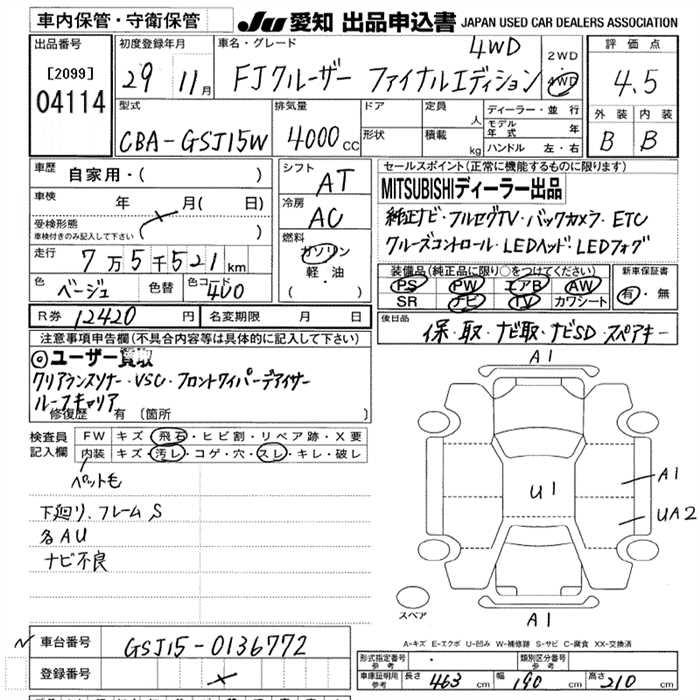 車内保管・守衛保管
JU 愛知 出品申込書 JAPAN USED CAR DEALERS ASSOCIATION
出品番号
[2099]
04114
初度登録年月
29 11月
車名・グレード
4WD
FJクルーザー ファイナルエディション
2WD
4WD
評価点
4.5
外装 内装
B B
型式
CBA-GSJ15W
排気量
4000cc
ドア
形状
定員 人
積載 kg
ディーラー・並行
モデル年式 年
ハンドル 左・右
車歴 自家用・( )
車検 年 月( 日)
受検形態
車検付きのみ記入して下さい ( )
走行 7万5千521km
色 ベージュ 色替 色コード 400
シフト AT
冷房 AC
燃料
ガソリン
軽・油
( )
セールスポイント(正常に機能するものに限ります)
MITSUBISHIディーラー出品
純正ナビ・フルセグTV・バックカメラ・ETC
クルーズコントロール・LEDヘッド・LEDフォグ
装備品(純正品に限り○をつけてください)
PS PW エアB AW
SR ナビ TV カワシート
新車保証書
有・無
R券 12420円 名変期限 月 日
後日品
保・取・ナビ取・ナビSD・スペアキー
注意事項申告欄(不具合内容等は具体的に記入して下さい)
◎ユーザー買取
クリアランスソナー・VSC・フロントワイパーデアイサー
ルーフキャリア
修復歴 有 〔箇所 〕
検査員記入欄
FW キズ・飛石・ヒビ割・リペア跡・X要
内装 キズ・汚レ・コゲ・穴・スレ・キレ・破レ
ペットも
下廻り、フレームS
各AU
ナビ不良
A1
U1
A1
UA2
A1
スペア
A-キズ E-エクボ U-凹み W-補修跡 S-サビ C-腐食 XX-交換済
車台番号 GSJ15-0136772
登録番号
形式指定番号 参考
類別区分番号 参考
車庫証明用 参考 長さ 463cm 幅 190cm 高さ 210cm